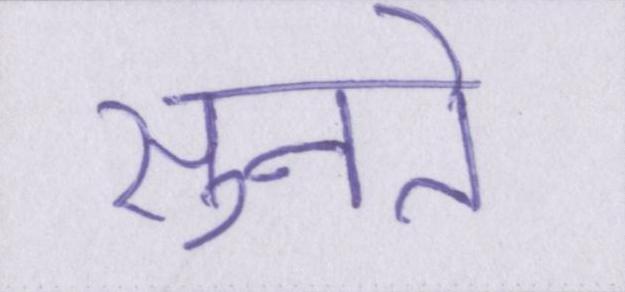 सुनते